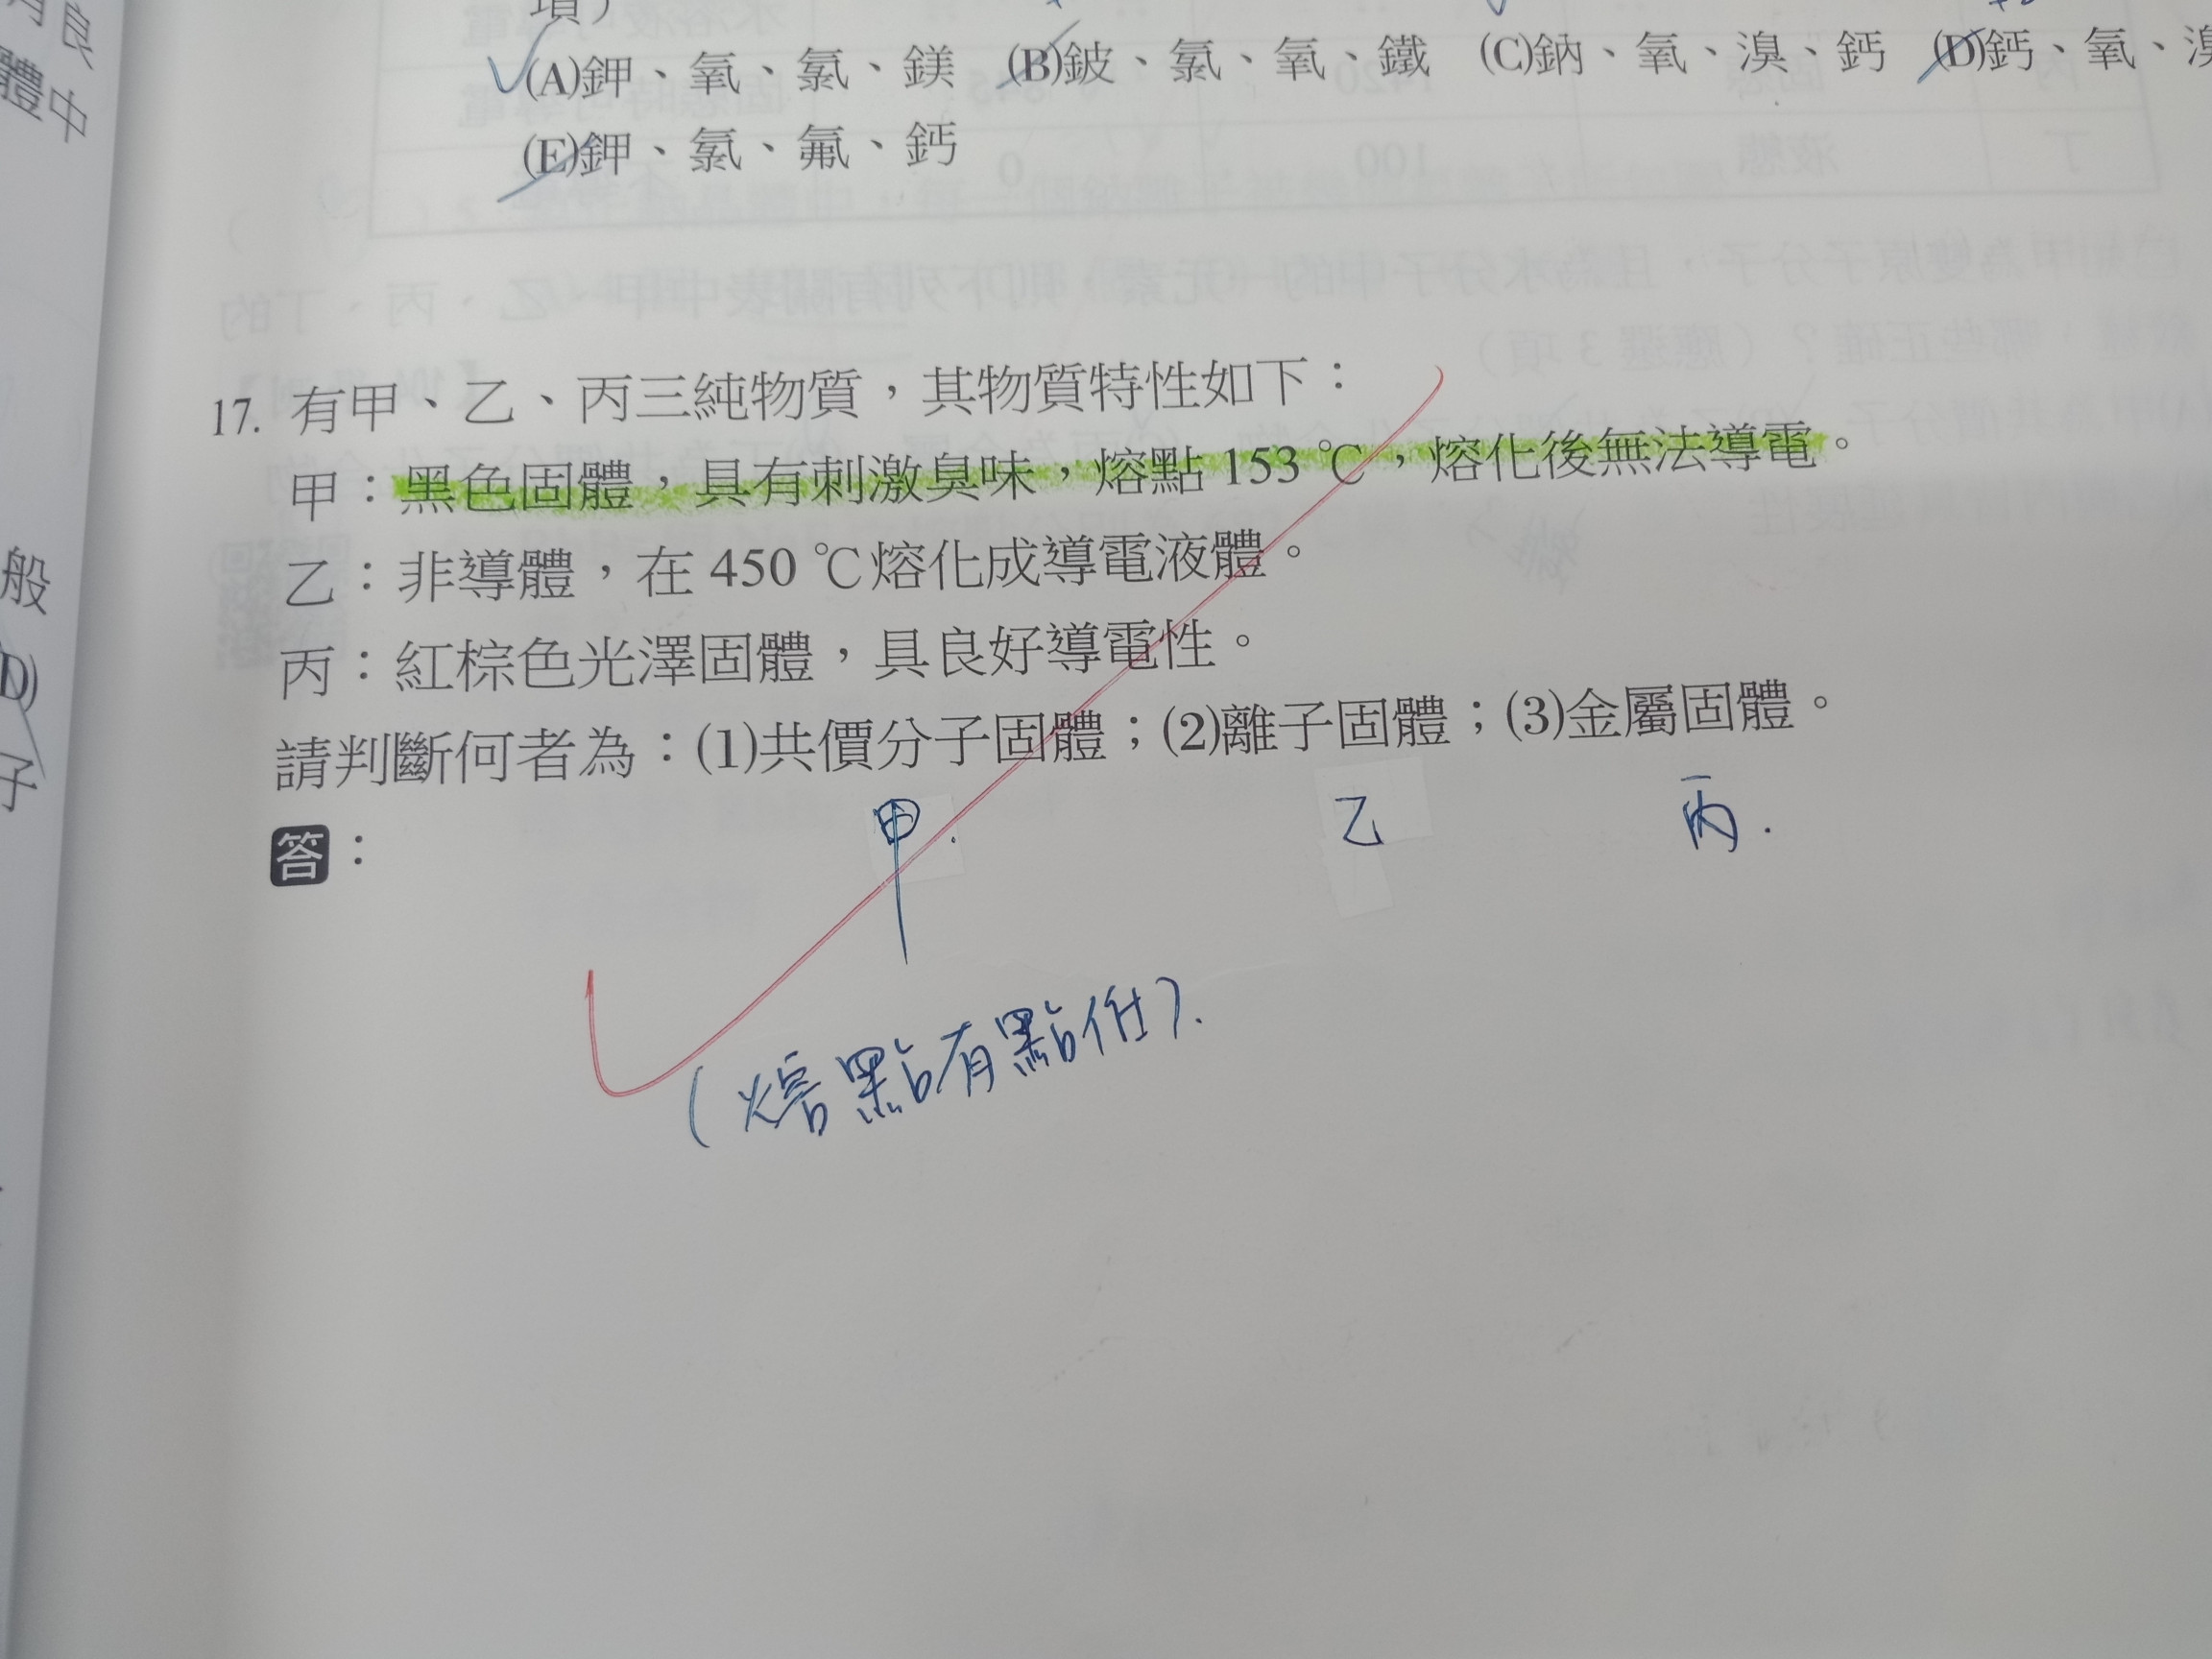 項)
(A)鉀、氧、氯、鎂 (B)鈹、氯、氧、鐵 (C)鈉、氧、溴、鈣 (D)鈣、氧、溴
(E)鉀、氯、氟、鈣
良
體中
般
D)
子
17. 有甲、乙、丙三純物質,其物質特性如下:
甲:黑色固體,具有刺激臭味,熔點 153 ℃,熔化後無法導電。
乙:非導體,在 450 ℃熔化成導電液體。
丙:紅棕色光澤固體,具良好導電性。
請判斷何者為:(1)共價分子固體;(2)離子固體;(3)金屬固體。
答:
甲. 乙 丙.
(熔點有點低).